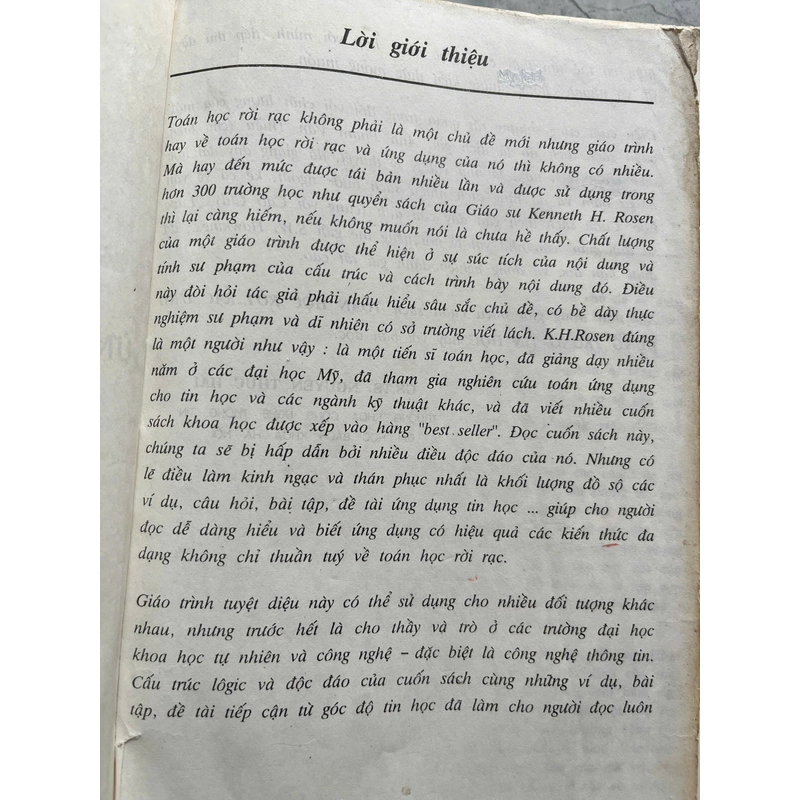 Lời giới thiệu
Toán học rời rạc không phải là một chủ đề mới nhưng giáo trình
hay về toán học rời rạc và ứng dụng của nó thì không có nhiều.
Mà hay đến mức được tái bản nhiều lần và được sử dụng trong
hơn 300 trường học như quyển sách của Giáo sư Kenneth H. Rosen
thì lại càng hiếm, nếu không muốn nói là chưa hề thấy. Chất lượng
của một giáo trình được thể hiện ở sự súc tích của nội dung và
tính sư phạm của cấu trúc và cách trình bày nội dung đó. Điều
này đòi hỏi tác giả phải thấu hiểu sâu sắc chủ đề, có bề dày thực
nghiệm sư phạm và dĩ nhiên có sở trường viết lách. K.H.Rosen đúng
là một người như vậy : là một tiến sĩ toán học, đã giảng dạy nhiều
năm ở các đại học Mỹ, đã tham gia nghiên cứu toán ứng dụng
cho tin học và các ngành kỹ thuật khác, và đã viết nhiều cuốn
sách khoa học được xếp vào hàng "best seller". Đọc cuốn sách này,
chúng ta sẽ bị hấp dẫn bởi nhiều điều độc đáo của nó. Nhưng có
lẽ điều làm kinh ngạc và thán phục nhất là khối lượng đồ sộ các
ví dụ, câu hỏi, bài tập, đề tài ứng dụng tin học ... giúp cho người
đọc dễ dàng hiểu và biết ứng dụng có hiệu quả các kiến thức đa
dạng không chỉ thuần tuý về toán học rời rạc.
Giáo trình tuyệt diệu này có thể sử dụng cho nhiều đối tượng khác
nhau, nhưng trước hết là cho thầy và trò ở các trường đại học
khoa học tự nhiên và công nghệ – đặc biệt là công nghệ thông tin.
Cấu trúc lôgic và độc đáo của cuốn sách cùng những ví dụ, bài
tập, đề tài tiếp cận từ góc độ tin học đã làm cho người đọc luôn